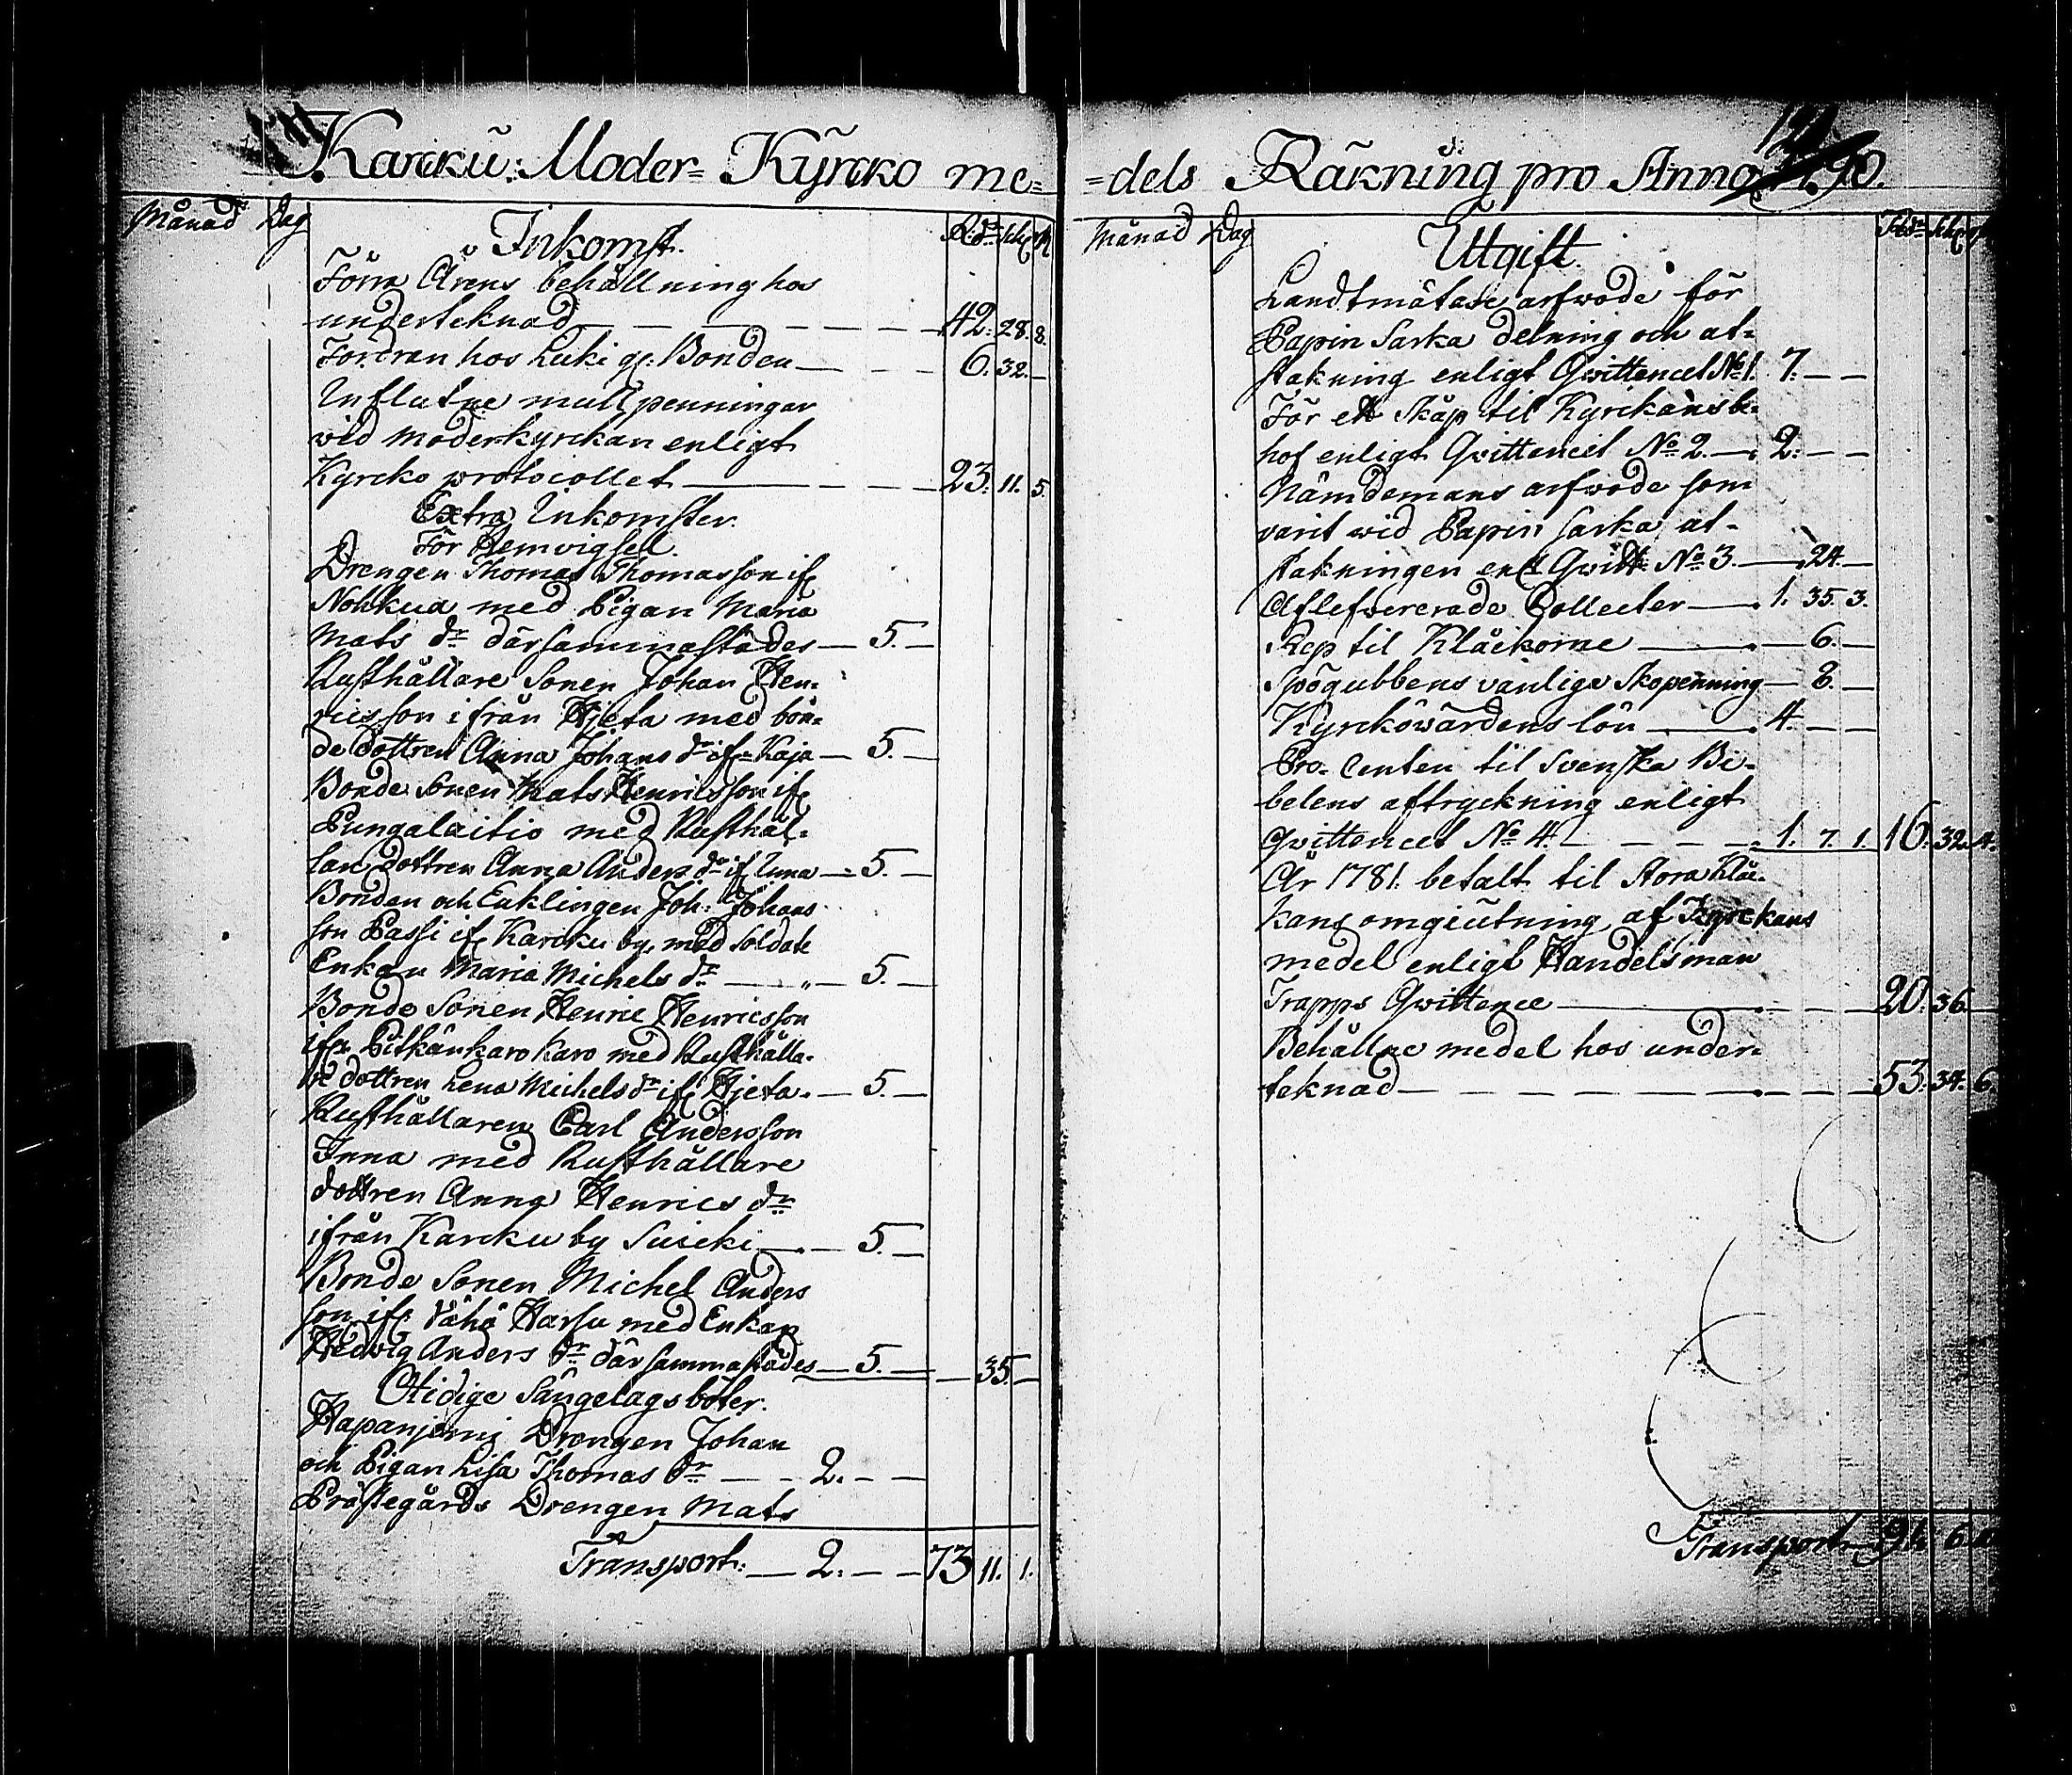 Karcku: Moder= Kyrcko me=
Månad Dag Inkomst. R:dr Sch rst
Förra Årens behållning hos
underteknad — — — — — 42. 28. 8.
Fordran hos Luki gl: Bonden — — — 6. 32. —
Influtne mull penningar
wid moderkyrckan enligt
Kyrcko protocollet — — — 23. 11. 5.
Extra Inkomster.
För Hemvigsel.
Drengen Thomas Thomasson if
Nohkua med Pigan Maria
Mats dr därsammastädes — 5. —
Rusthållare Sonen Johan Hen-
ricsson ifrån Hjeta med bon-
de dottren Anna Johans dr if Kaja — 5. —
Bonde Sonen Mats Henricsson if
Pungalaitio med Rusthål-
lare dottren Anna Anders dr if — 5. —
Bonden och Enklingen Joh: Johans
son Passi if Karcku by, med Soldate
Enkan Maria Michels dr — „ — 5. —
Bonde Sonen Henric Henricsson
ifr Pitkänkaro Karo med Rusthålla-
re dottren Lena Michels dr if Hjeta. — 5. —
Rusthållaren Carl Andersson
Inna med Rusthållare
dottren Anna Henrics dr
ifrån Karcku by Suicki — . — 5. —
Bonde Sonen Michel Anders
son if Vähä Harsu med Enkan
Hedvig Anders dr därsammastädes — 5. — — 35. —
Otidige Sängelagsböter.
Hapanjerwi Drengen Johan
och Pigan Lisa Thomas dr — — 2. — —
Prästegårds Drengen Mats
Transport: — 2. — — 73 11. 1.
=dels Räkning pro Anno 90.
Månad Dag Utgift. R:dr Sch
Landtmätare arfwode för
Papin Sarka delning och at-
stakning enligt Qvittencet No 1. 7. — —
För ett Skåp til Kyrckans be-
hof enligt Qvittencet No 2. — 2. — —
Nämdemans arfwode som
varit wid Papin sarka at-
stakningen enl Qvitt: No 3. — 24. —
Aflefwererade Collecter — . 1. 35. 3.
Rep til Klåckorne — . — 6. —
Spögubbens vanliga Skopenning — 8. —
Kyrckowärdens lön — 4. — —
Pro- Centen til Svenska Bi-
belens aftryckning enligt
qvittencet No 4. — — — 1. 7. 1. 16. 32. 4.
År 1781. betalt til Stora Klåc-
kans omgiutning af Kyrckans
medel enligt Handelsman
Trapps Qvittence — — — 20. 36 —
Behållne medel hos under-
teknad — — — — — 53. 34. 6.
Transport — 91. 6.